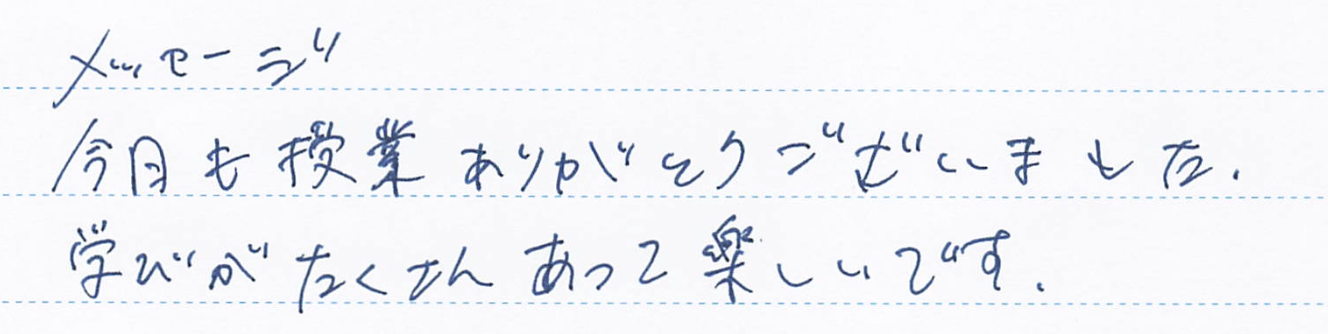 メッセージ
今日も授業ありがとうございました.
学びがたくさんあって楽しいです.